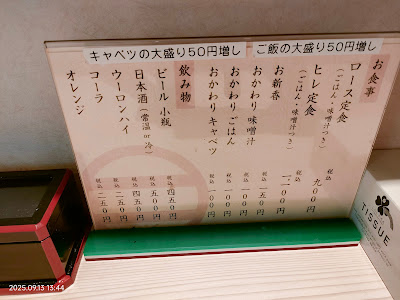 キャベツの大盛り50円増し　ご飯の大盛り50円増し
お食事
ロース定食 税込 九〇〇円
(ごはん・味噌汁つき)
ヒレ定食 税込
(ごはん・味噌汁つき)
お新香 税込 一五〇円
おかわり味噌汁 税込 一〇〇円
おかわりごはん 税込 一〇〇円
おかわりキャベツ 税込 一〇〇円
飲み物
ビール 小瓶 税込 四五〇円
日本酒(常温 or 冷) 税込 五〇〇円
ウーロンハイ 税込 四五〇円
コーラ 税込 二五〇円
オレンジ 税込 二五〇円
TISSUE
2025.09.13 13:44